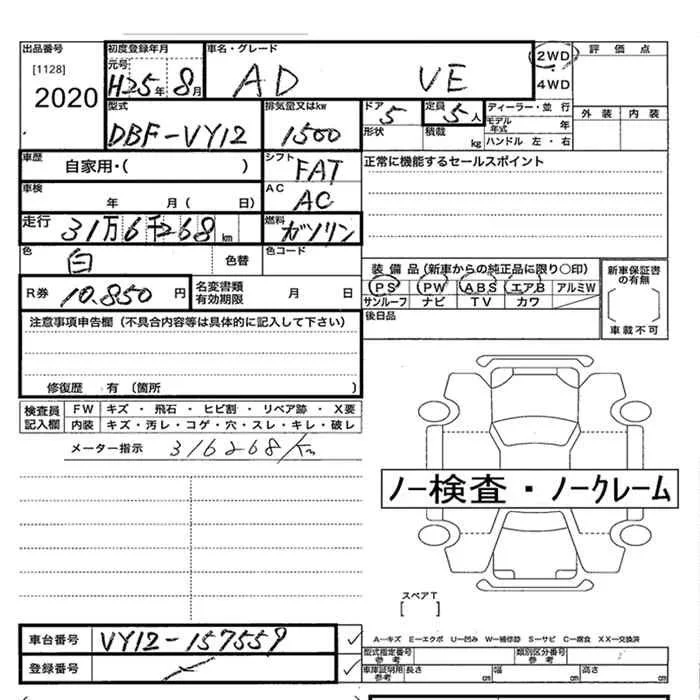 出品番号 初度登録年月 車名・グレード 2WD 評価点
[1128] 元号 H25年 8月 AD VE 4WD
2020
型式 排気量又はkw ドア 5 定員 5人 ディーラー・並行 外装 内装
DBF-VY12 1500 形状 積載 kg モデル年式 年
ハンドル 左・右
車歴 自家用・( ) シフト FAT 正常に機能するセールスポイント
車検 年 月( 日) AC AC
走行 31万6千268km 燃料 ガソリン
色 白 色替 色コード
装備品(新車からの純正品に限り○印) 新車保証書の有無
R券 10.850円 名変書類有効期限 月 日 PS PW ABS エアB アルミW
サンルーフ ナビ TV カワ
注意事項申告欄(不具合内容等は具体的に記入して下さい) 後日品 車載不可
修復歴 有 (箇所 )
検査員記入欄 FW キズ・飛石・ヒビ割・リペア跡・X要
内装 キズ・汚レ・コゲ・穴・スレ・キレ・破レ
メーター指示 316268Km
ノー検査・ノークレーム
スペアT
[ ]
車台番号 VY12-157559 A-キズ E-エクボ U-凹み W-補修跡 S-サビ C-腐食 XX-交換済
型式指定番号 参考 類別区分番号 参考
登録番号 車庫証明用 参考 長さ cm 幅 cm 高さ cm